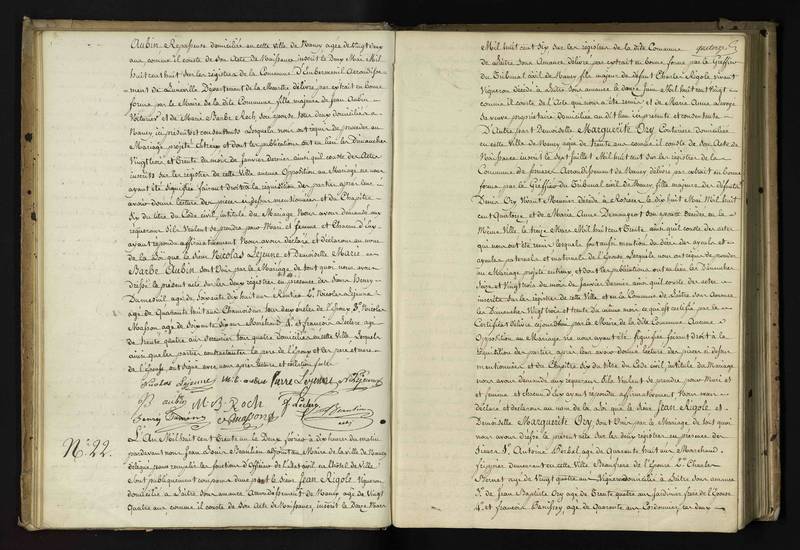 Aubin, Repasseuse domiciliée en cette ville de Nancy agée de Vingt deux
ans comme il conste de son Acte de Naissance inscrit le Deux Mai Mil
huit cent huit sur les régistres de la Commune d'Emberménil Arrondisse
-ment de Lunéville Département de la Meurthe délivré par extrait en bonne
forme par le Maire de la dite Commune fille majeure de Jean Aubin
Voiturier et de Marie Barbe Roch son épouse tous deux domiciliés à
Nancy ici présents et consentants Lesquels nous ont requis de procéder au
Mariage projeté entreux et dont les publications ont eu lieu les Dimanches
Vingt trois et Trente du mois de janvier dernier ainsi qu'il conste des Actes
inscrits sur les régistres de cette Ville aucune Opposition au Mariage ne nous
ayant été signifiée faisant droit à la réquisition des parties après leur
avoir donné lecture des pièces ci dessus mentionnées et du Chapitre
Six du titre du Code civil, intitulé du Mariage Nous avons demandé aux
réquérans s'ils veulent se prendre pour Mari et femme et Chacun d'eux
ayant répondu affirmativement Nous avons déclaré et déclarons au nom
de la Loi que le sieur Nicolas Lejeune et Demoiselle Marie
Barbe Aubin sont Unis par le Mariage de tout quoi nous avons
dressé le présent acte sur les deux régistres en présence des sieurs Henry
agé de soixante dix huit ans Rentier 2° Nicolas Lejeune
agé de Quarante huit ans Chamoiseur tous deux oncles de l'époux 3° Nicolas
Masson agé de soixante dix ans Marchand 4° et françois Leclerc agé
de Trente quatre ans Serrurier tous quatre domiciliés en cette Ville Lesquels
ainsi que les parties contractantes le père de l'époux et les père et mère
de l'épouse ont signé avec nous après lecture et collation faites
Nicolas Lejeune M. B. aubin Pierre Lejeune N Lejeune
J aubin M. B. Roch f Leclerc
Henry N Masson Beaulieu
adj
N° 22.
L'An Mil huit cent Trente un le Deux février à dix heures du matin
pardevant nous Jean Louis Beaulieu adjoint au Maire de la ville de Nancy
délégué pour remplir les fonctions d'Officier de l'état civil en l'hôtel de Ville
sont publiquement comparus d'une part le sieur Jean Rigole Vigneron
domicilié à Laître sous amance Arrondissement de Nancy, agé de Vingt
Quatre ans comme il conste de son Acte de Naissance, inscrit le Deux Mars
quatorze
Mil huit cent Six sur les régistres de la dite Commune
de Laître sous Amance délivré par extrait en bonne forme par le Greffier
du Tribunal civil de Nancy fils majeur de défunt Charles Rigole vivant
Vigneron décédé à Laître sous amance le douze Juin Mil huit cent Vingt
comme il conste de l'Acte qui nous a été remis et de Marie Anne
sa veuve propriétaire domiciliée au dit lieu ici présente et consentante
D'Autre part Demoiselle Marguerite Ory Couturière domiciliée
en cette Ville de Nancy agée de Trente ans comme il conste de son Acte de
Naissance inscrit le Sept juillet Mil huit cent sur les régistres de la
Commune de Arrondissement de Nancy délivré par extrait en bonne
forme par le Greffier du Tribunal civil de Nancy, fille majeure des défunts
Denis Ory Vivant Meunier décédé à le dix huit Mai Mil huit
cent Quatorze et de Marie Anne Demangeot son épouse décédée en la
Même Ville le treize Mars Mil huit cent Trente ainsi qu'il conste des actes
qui nous ont été remis lesquels font aussi mention du décès des ayeuls et
ayeules paternels et maternels de l'épouse Lesquels nous ont requis de procéder
au Mariage projeté entreux et dont les publications ont eu lieu les Dimanches
Seize et Vingt trois du mois de janvier dernier ainsi qu'il conste des actes
inscrits sur les régistres de cette Ville et en la Commune de Laître sous Amance
les Dimanches Vingt trois et trente du même mois ce qui est certifié par le
Certificat délivré ce jourd'hui par le Maire de la dite Commune Aucune
Opposition au Mariage ne nous ayant été signifiée faisant droit à la
réquisition des parties après leur avoir donné lecture des pièces ci dessus
mentionnées et du Chapitre Six du titre du Code civil, intitulé du Mariage
nous avons demandé aux réquérans s'ils veulent se prendre pour Mari et
et femme et chacun d'eux ayant répondu affirmativement Nous avons
déclaré et déclarons au nom de la Loi que le sieur Jean Rigole et
Demoiselle Marguerite Ory, sont Unis par le Mariage de tout quoi
nous avons dressé le présent acte sur les deux régistres en présence des
sieurs 1° Antoine agé de Quarante huit ans Marchand
fripier demeurant en cette Ville Beaufrère de l'épouse 2° Charles
agé de Vingt quatre ans Vigneron domicilié à Laître sous amance
3° de Jean Baptiste Ory agé de Trente quatre ans jardinier frère de l'épouse
4° et françois agé de Quarante ans Cordonnier, ces deux